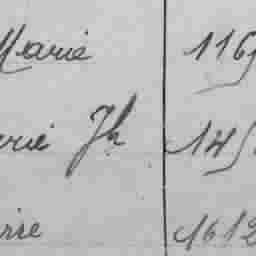 Marie 116
rie Jh 145
rre 1612